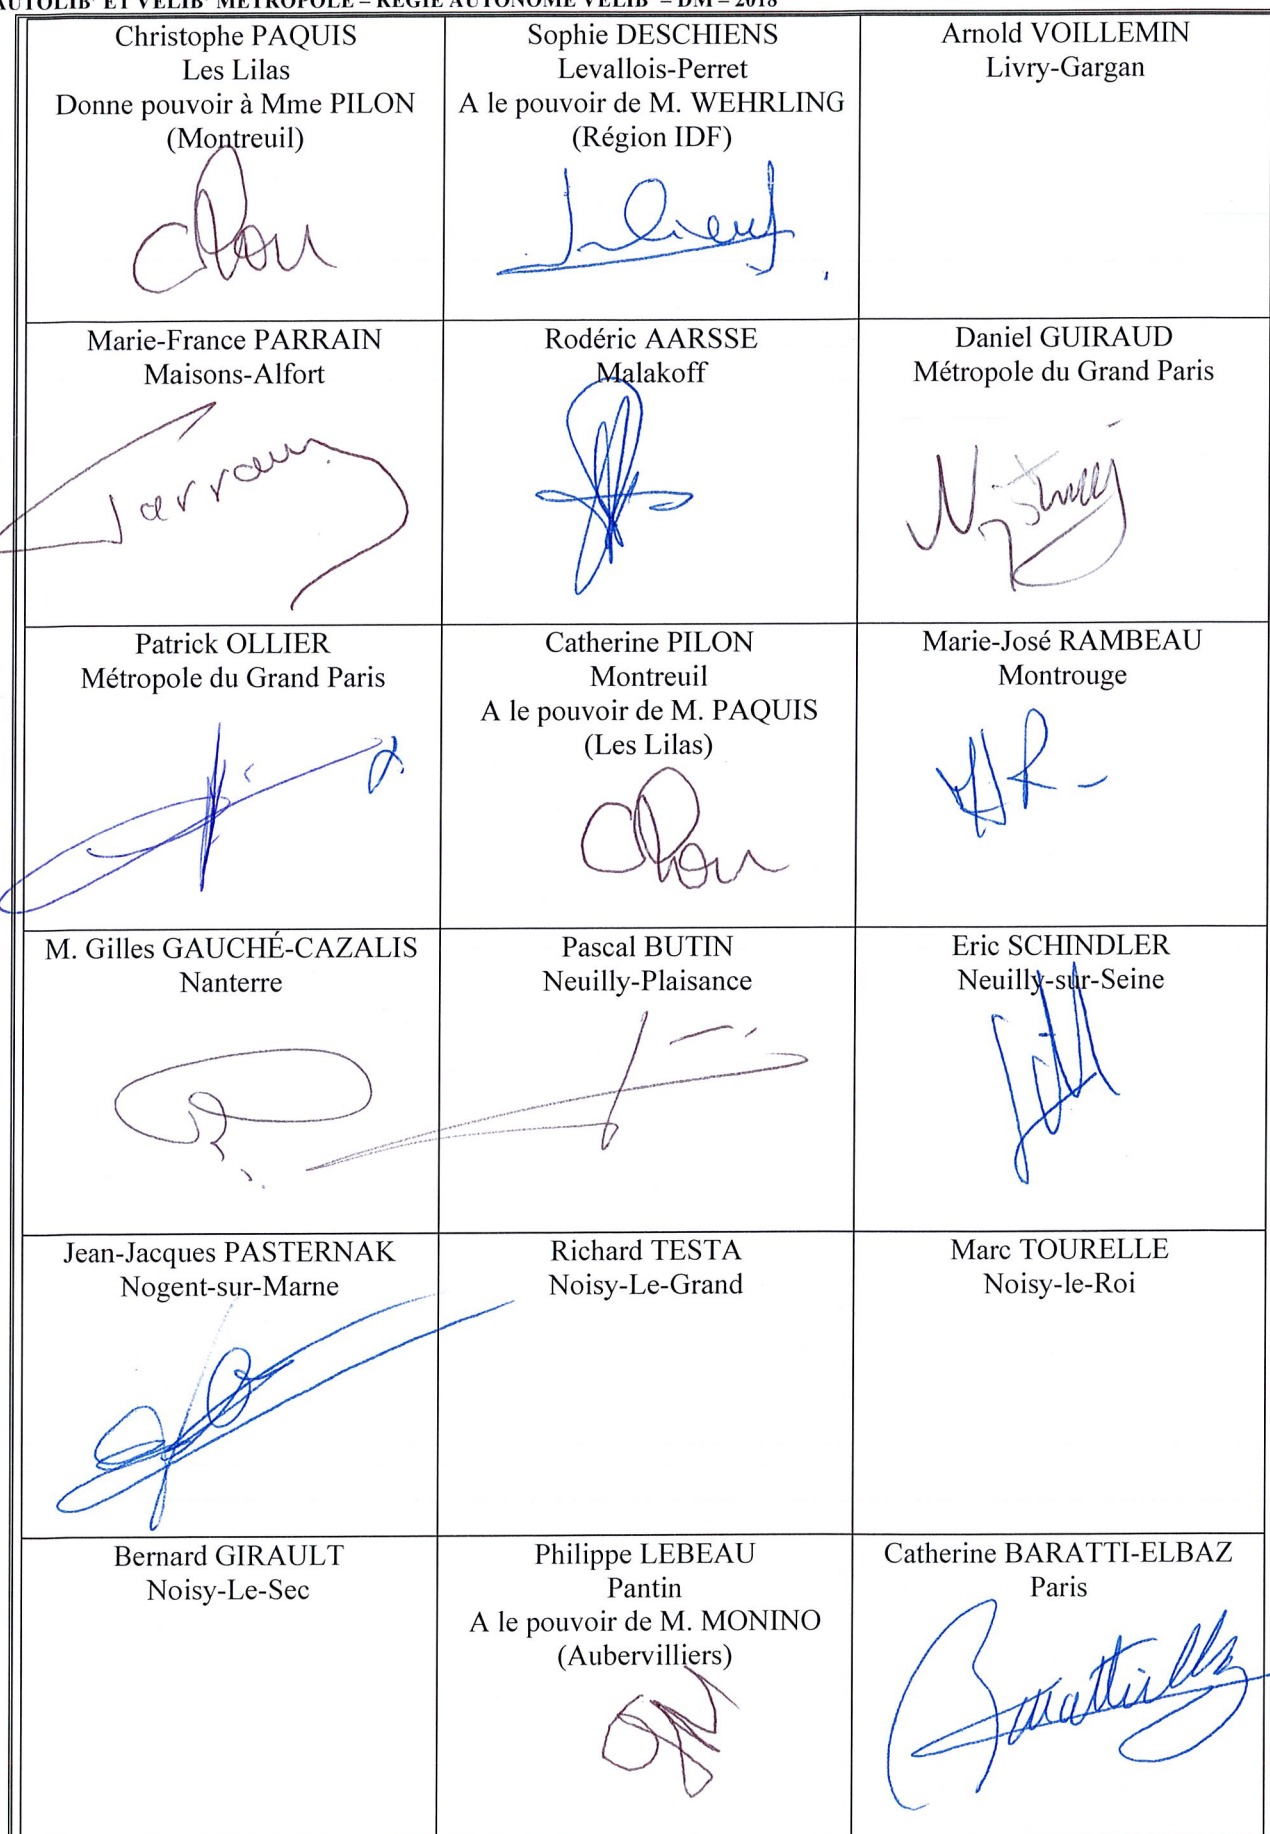 AUTOLIB' ET VELIB' METROPOLE – REGIE AUTONOME VELIB' – DM – 2018
Christophe PAQUIS
Les Lilas
Donne pouvoir à Mme PILON
(Montreuil)
Sophie DESCHIENS
Levallois-Perret
A le pouvoir de M. WEHRLING
(Région IDF)
Arnold VOILLEMIN
Livry-Gargan
Marie-France PARRAIN
Maisons-Alfort
Rodéric AARSSE
Malakoff
Daniel GUIRAUD
Métropole du Grand Paris
Patrick OLLIER
Métropole du Grand Paris
Catherine PILON
Montreuil
A le pouvoir de M. PAQUIS
(Les Lilas)
Marie-José RAMBEAU
Montrouge
M. Gilles GAUCHÉ-CAZALIS
Nanterre
Pascal BUTIN
Neuilly-Plaisance
Eric SCHINDLER
Neuilly-sur-Seine
Jean-Jacques PASTERNAK
Nogent-sur-Marne
Richard TESTA
Noisy-Le-Grand
Marc TOURELLE
Noisy-le-Roi
Bernard GIRAULT
Noisy-Le-Sec
Philippe LEBEAU
Pantin
A le pouvoir de M. MONINO
(Aubervilliers)
Catherine BARATTI-ELBAZ
Paris